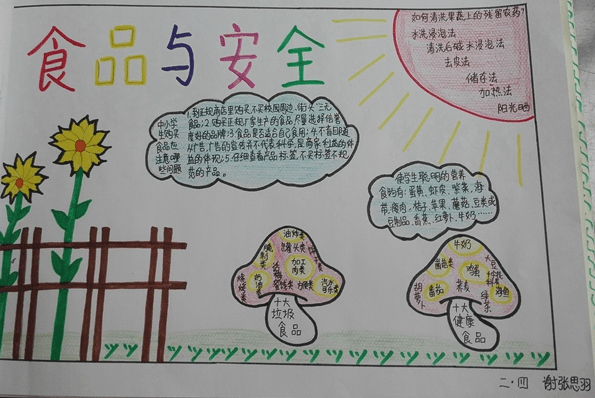 食品与安全
如何清洗果蔬上的残留农药?
水洗浸泡法
清洗后碱水浸泡法
去皮法
储存法
加热法
阳光晒
中小学
生购买
食品应
注意哪
些问题
1.到正规商店里购买,不买校园周边、街头"三无
食品;2.购买正规厂家生产的食品,尽量选择信誉
度好的品牌;3.食品是否适合自己食用;4.不盲目随
从广告,广告的宣传并不代表科学,是商家利益的体
5.仔细查看产品标签,不买标签不规
范的产品。
使学生聪明的营养
食物有:蛋黄、虾皮、紫菜、海
带、瘦肉、桔子、苹果、蘑菇、豆类或
豆制品、香蕉、红萝卜、牛奶……
油炸类
罐头类
加工
肉类
烧烤类
方便类
十大
垃圾
食品
牛奶
菌菇类
鸡蛋
大豆
番茄
荞麦
胡萝卜
绿茶
海鱼
十大
健康
食品
二·四 谢张思羽